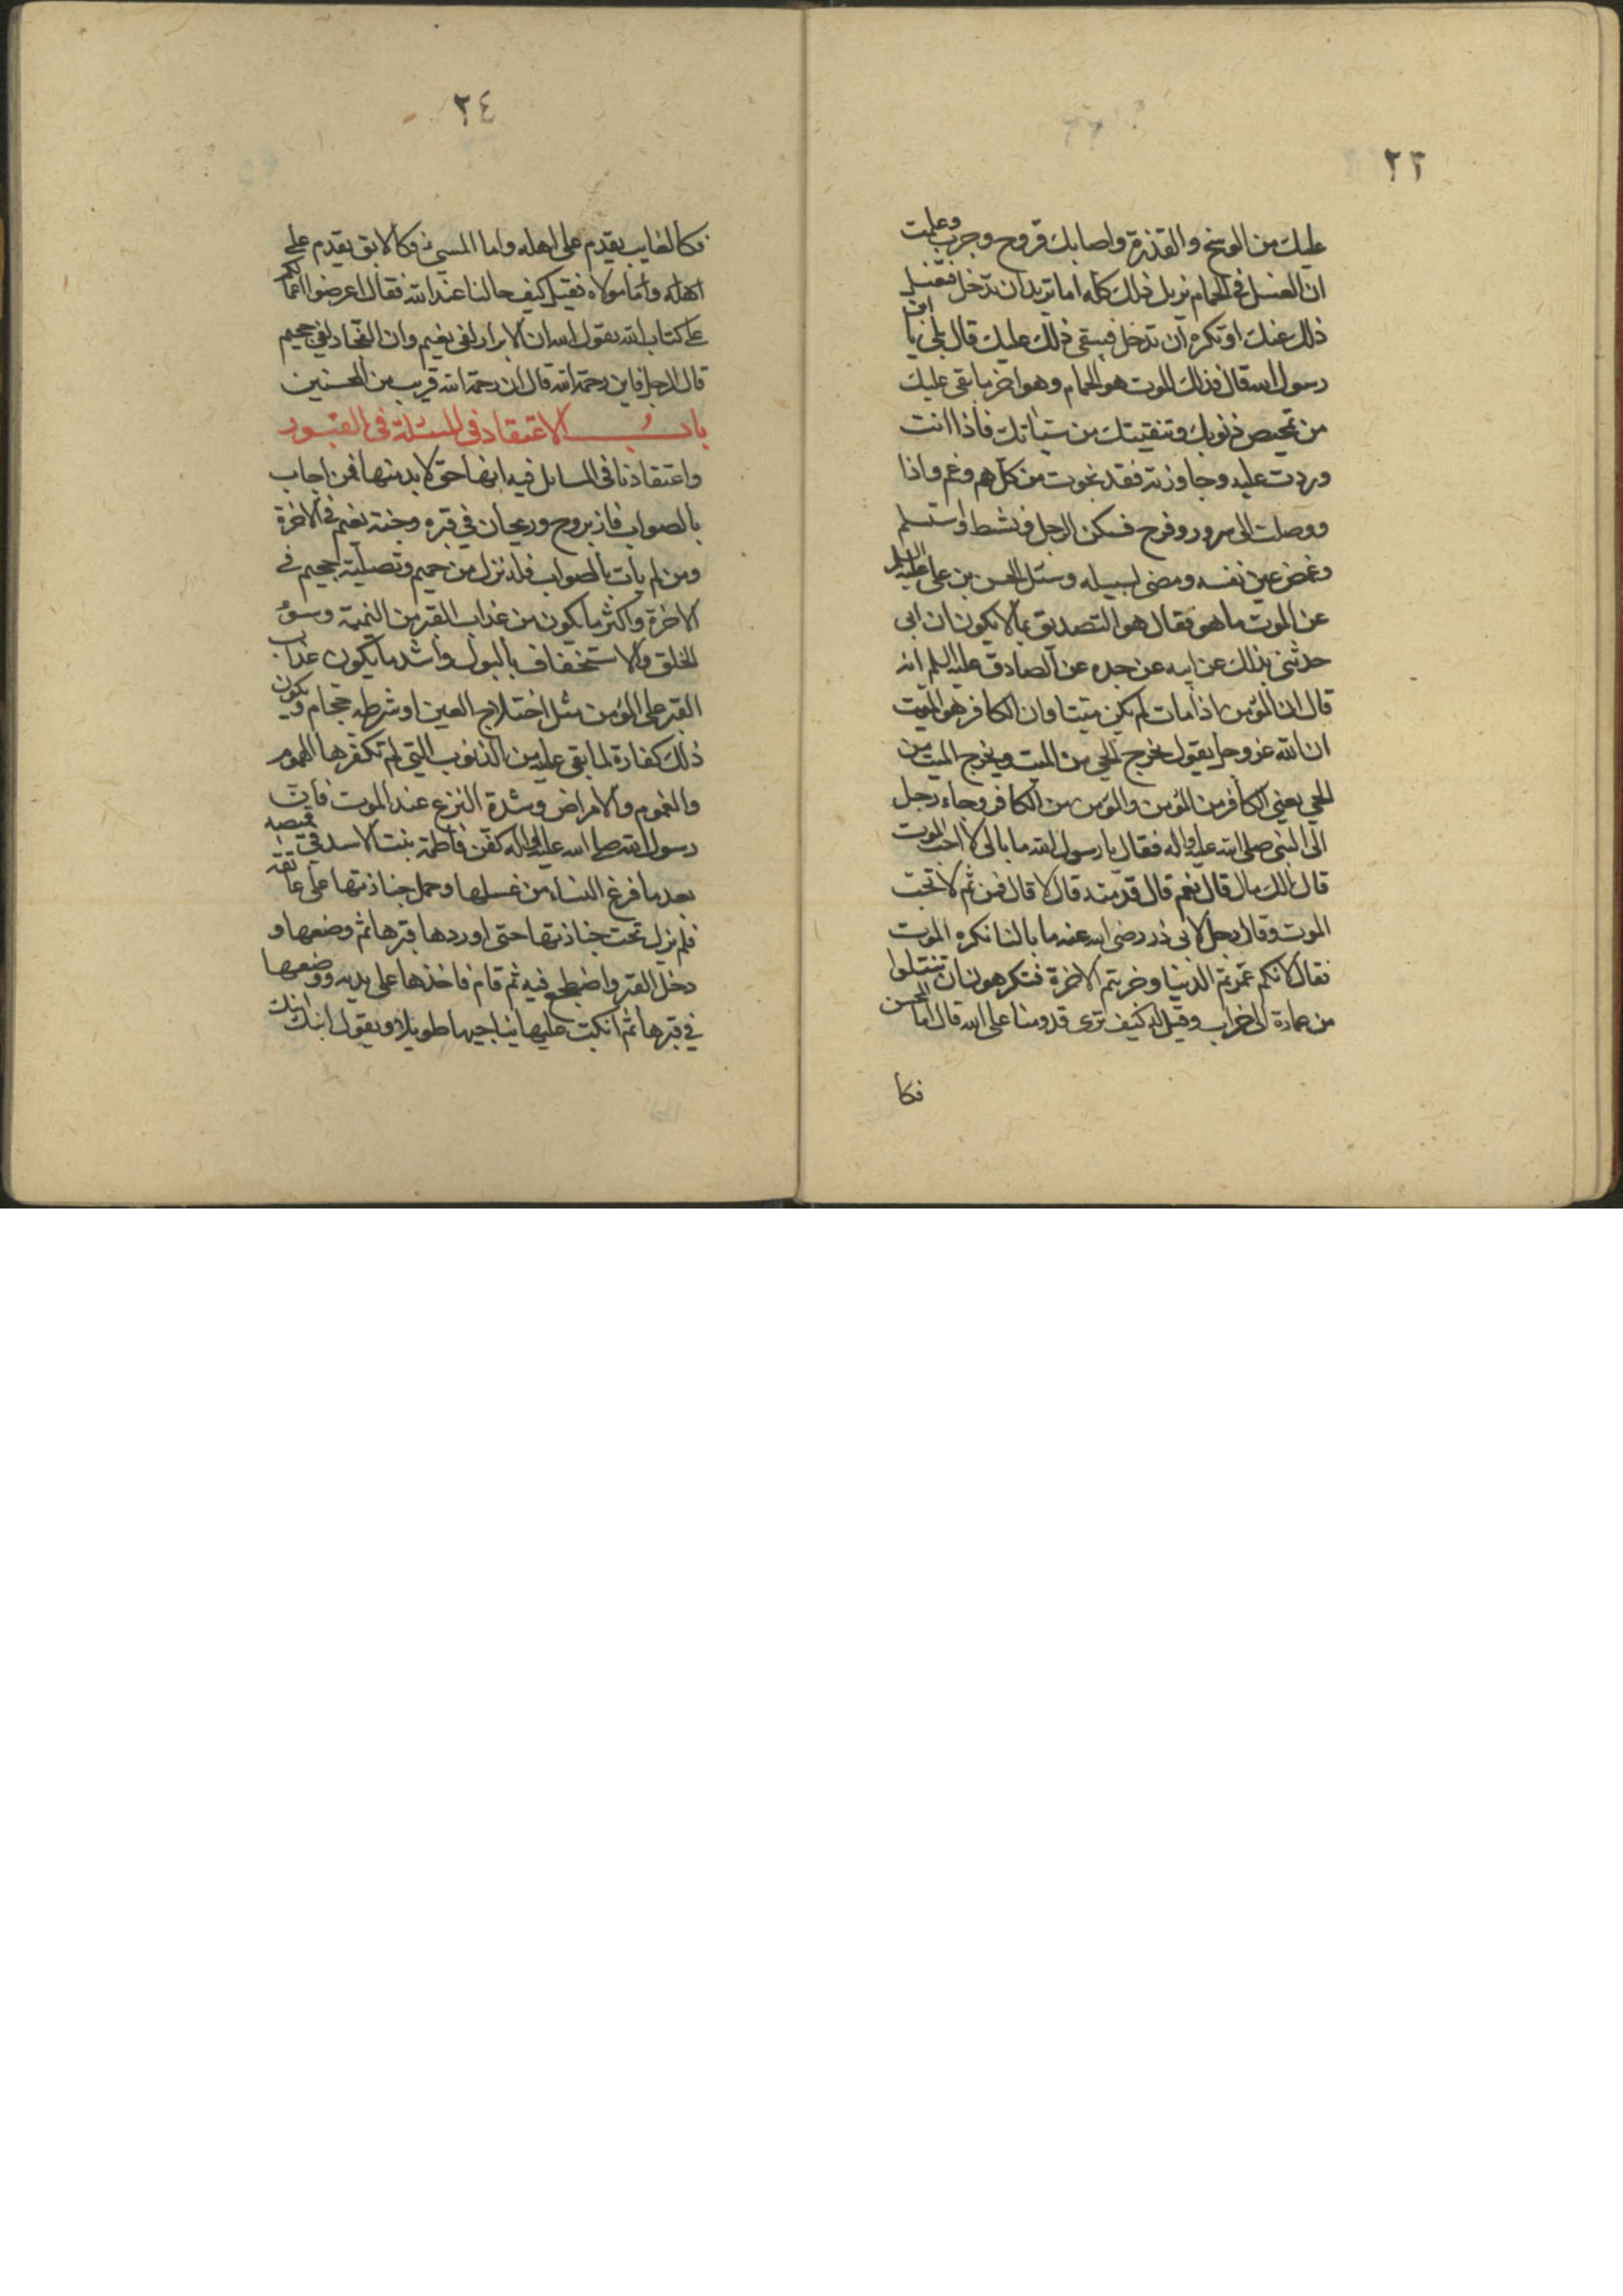 ٢٣
عليك من الوسخ والقذرة واصابك قروح وجرب وعلمت
ان الغسل فى الحمام يزيل ذلك كله اما تريد ان تدخل فتغسل
ذلك عنك او تكره ان تدخل فيبقى ذلك عليك قال بلى يا ابن
رسول الله قال فذلك الموت هو الحمام وهو اخر ما بقى عليك
من تمحيص ذنوبك وتنقيتك من سيئاتك فاذا انت
وردت عليه وجاوزته فقد نجوت من كل هم وغم واذا
ووصلت الى سرور وفرح فسكن الرجل ونشط واستسلم
وغمض عين نفسه ومضى لسبيله وسئل الحسن بن على عليه السلم
عن الموت ما هو فقال هو التصديق بما لا يكون ان ابى
حدثنى بذلك عن ابيه عن جده عن الصادق عليه السلم انه
قال ان المؤمن اذا مات لم يكن ميتا وان الكافر هو الميت
ان الله عز وجل يقول يخرج الحي من الميت ويخرج الميت من
الحي يعنى الكافر من المؤمن والمؤمن من الكافر وجاء رجل
الى النبى صلى الله عليه واله فقال يا رسول الله ما بالى لا احب الموت
قال الك مال قال نعم قال قدمته قال لا قال فمن ثم لا تحب
الموت وقال رجل لابى ذر رضى الله عنه ما بالنا نكره الموت
فقال لانكم عمرتم الدنيا وخربتم الاخرة فتكرهون ان تنتقلوا
من عمارة الى خراب وقيل له كيف ترى قدومنا على الله قال اما المحسن
فكا
٢٤
فكالغايب يقدم على اهله واما المسئ فكالابق يقدم على
اهله واما مولاه فقيل كيف حالنا عند الله فقال اعرضوا اعمالكم
على كتاب الله يقول الله ان الابرار لفى نعيم وان الفجار لفي جحيم
قال الرجل فاين رحمة الله قال ان رحمة الله قريب من المحسنين
باب الاعتقاد فى المسئلة فى القبور
واعتقادنا فى المسائل فيه انها حق لا بد منها فمن اجاب
بالصواب فاز بروح وريحان في قبره وجنة نعيم فى الاخرة
ومن لم يأت بالصواب فله نزل من حميم وتصلية جحيم فى
الاخرة واكثر ما يكون من عذاب القبر من النميمة وسوء
الخلق والاستخفاف بالبول واشد ما يكون عذاب
القبر على المؤمن مثل اختلاج العين او شرطة حجام ويكون
ذلك كفارة لما بقى عليه من الذنوب التي لم تكفرها الهموم
والغموم والامراض وشدة النزع عند الموت فان
رسول الله صلى الله عليه واله كفن فاطمة بنت الاسد فى قميصه
بعد ما فرغ النساء من غسلها وحمل جنازتها على عاتقه
فلم يزل تحت جنازتها حتى اوردها قبرها ثم وضعها و
دخل القبر واضطجع فيه ثم قام فاخذها على يديه ووضعها
في قبرها ثم انكب عليها يناجيها طويلا ويقول ابنك ابنك